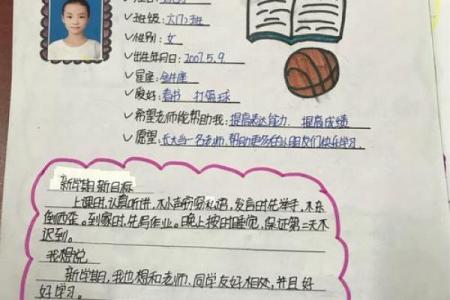 ✓班级：六(1)班
✓性别：女
✓出生年月日：2007.5.9
✓星座：金牛座
✓爱好：看书 打篮球
✓希望老师能帮助我：提高表达能力、提高成绩
✓愿望：长大当一名老师，帮助更多的小朋友们快乐学习。
新学期新目标
上课时，认真听讲，不小声窃窃私语，发言时先举手，不东
倒西歪。到家时，先写作业。晚上按时睡觉，保证第二天不
迟到。
我想说
新学期，我也想和老师、同学友好相处，并且好
好学习。